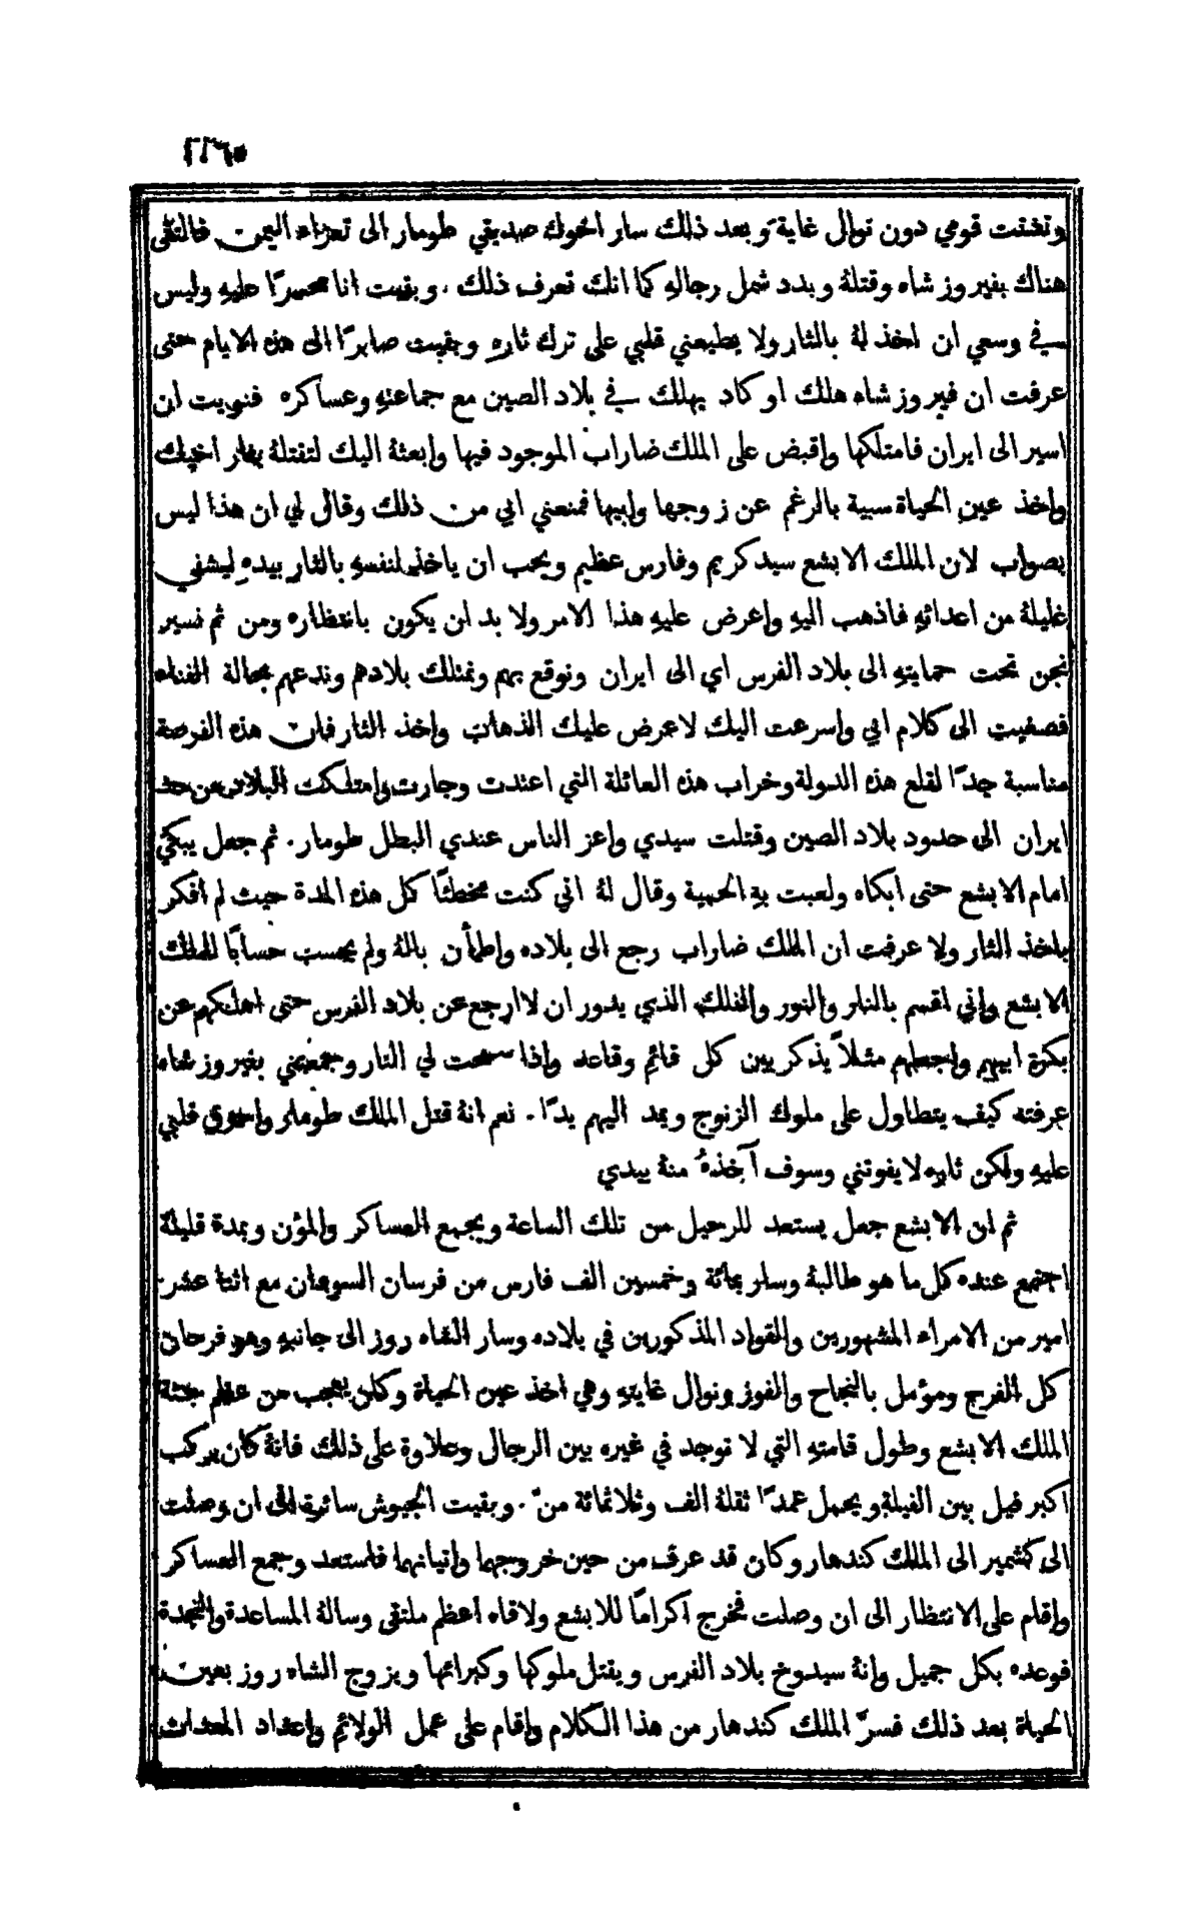 وتشتت قومي دون نوال غاية وبعد ذلك سار اخوك صديقي طومار الى تعزاء اليمن فالتقى
هناك بفيروز شاه وقتلة وبدد شمل رجاله كما انك تعرف ذلك . وبقيت انا متحسرًا عليهِ وليس
في وسعي ان اخذ لهُ بالثار ولا يطيعني قلبي على ترك ثاره وبقيت صابرًا الى هذه الايام حتى
عرفت ان فيروز شاه هلك او كاد يهلك في بلاد الصين مع جماعتهِ وعساكره فنويت ان
اسير الى ايران فامتلكها واقبض على الملك ضاراب الموجود فيها وابعثهُ اليك لتقتلهُ بثار اخيك
واخذ عين الحياة سبية بالرغم عن زوجها وابيها فمنعني ابي من ذلك وقال لي ان هذا ليس
بصواب لان الملك الابشع سيد كريم وفارس عظيم ويجب ان ياخذ لنفسهِ بالثار بيدهِ ليشفي
غليلة من اعدائهِ فاذهب اليهِ واعرض عليهِ هذا الامر ولا بد ان يكون بانتظاره ومن ثم نسير
نحن تحت حمايتهِ الى بلاد الفرس اي الى ايران ونوقع بهم ونمتلك بلادهم وندعهم بحالة الفناء
فصغيت الى كلام ابي واسرعت اليك لاعرض عليك الذهاب واخذ الثار فان هذه الفرصة
مناسبة جدًا لقلع هذه الدولة وخراب هذه العائلة التي اعتدت وجارت وامتلكت البلاد من حد
ايران الى حدود بلاد الصين وقتلت سيدي واعز الناس عندي البطل طومار . ثم جعل يبكي
امام الابشع حتى ابكاه ولعبت بهِ الحمية وقال لهُ اني كنت مخطئًا كل هذه المدة حيث لم افكر
باخذ الثار ولا عرفت ان الملك ضاراب رجع الى بلاده واطمأن بالهُ ولم يحسب حسابًا للملك
الابشع واني اقسم بالنار والنور والفلك الذي يدور ان لا ارجع عن بلاد الفرس حتى اهلكهم عن
بكرة ابيهم واجعلهم مثلاً يذكر بين كل قائم وقاعد واذا سمحت لي النار وجمعتني بفيروز شاه
عرفته كيف يتطاول على ملوك الزنوج ويمد اليهم يدًا . نعم انهُ قتل الملك طومار واحرق قلبي
عليهِ ولكن ثاره لا يفوتني وسوف آخذهُ منهُ بيدي
ثم ان الابشع جعل يستعد للرحيل من تلك الساعة ويجمع العساكر والمؤن وبمدة قليلة
اجتمع عنده كل ما هو طالبهُ وسار بمائة وخمسين الف فارس من فرسان السودان مع اثنا عشر
امير من الامراء المشهورين والقواد المذكورين في بلاده وسار الشاه روز الى جانبهِ وهو فرحان
كل الفرح ومؤمل بالنجاح والفوز ونوال غايتهِ وهي اخذ عين الحياة وكان يعجب من عظم جثة
الملك الابشع وطول قامتهِ التي لا توجد في غيره بين الرجال وعلاوة على ذلك فانهُ كان يركب
اكبر فيل بين الفيلة ويحمل عمدًا ثقلهُ الف وثلاثمائة منّ . وبقيت الجيوش سائرة الى ان وصلت
الى كشمير الى الملك كندهار وكان قد عرف من حين خروجهما واتيانهما فاستعد وجمع العساكر
واقام على الانتظار الى ان وصلت فخرج اكرامًا للابشع ولاقاه اعظم ملتقى وسالهُ المساعدة والنجدة
فوعده بكل جميل وانهُ سيدوخ بلاد الفرس ويقتل ملوكها وكبرائها ويزوج الشاه روز بعين
الحياة بعد ذلك فسرّ الملك كندهار من هذا الكلام واقام على عمل الولائم واعداد المعدات